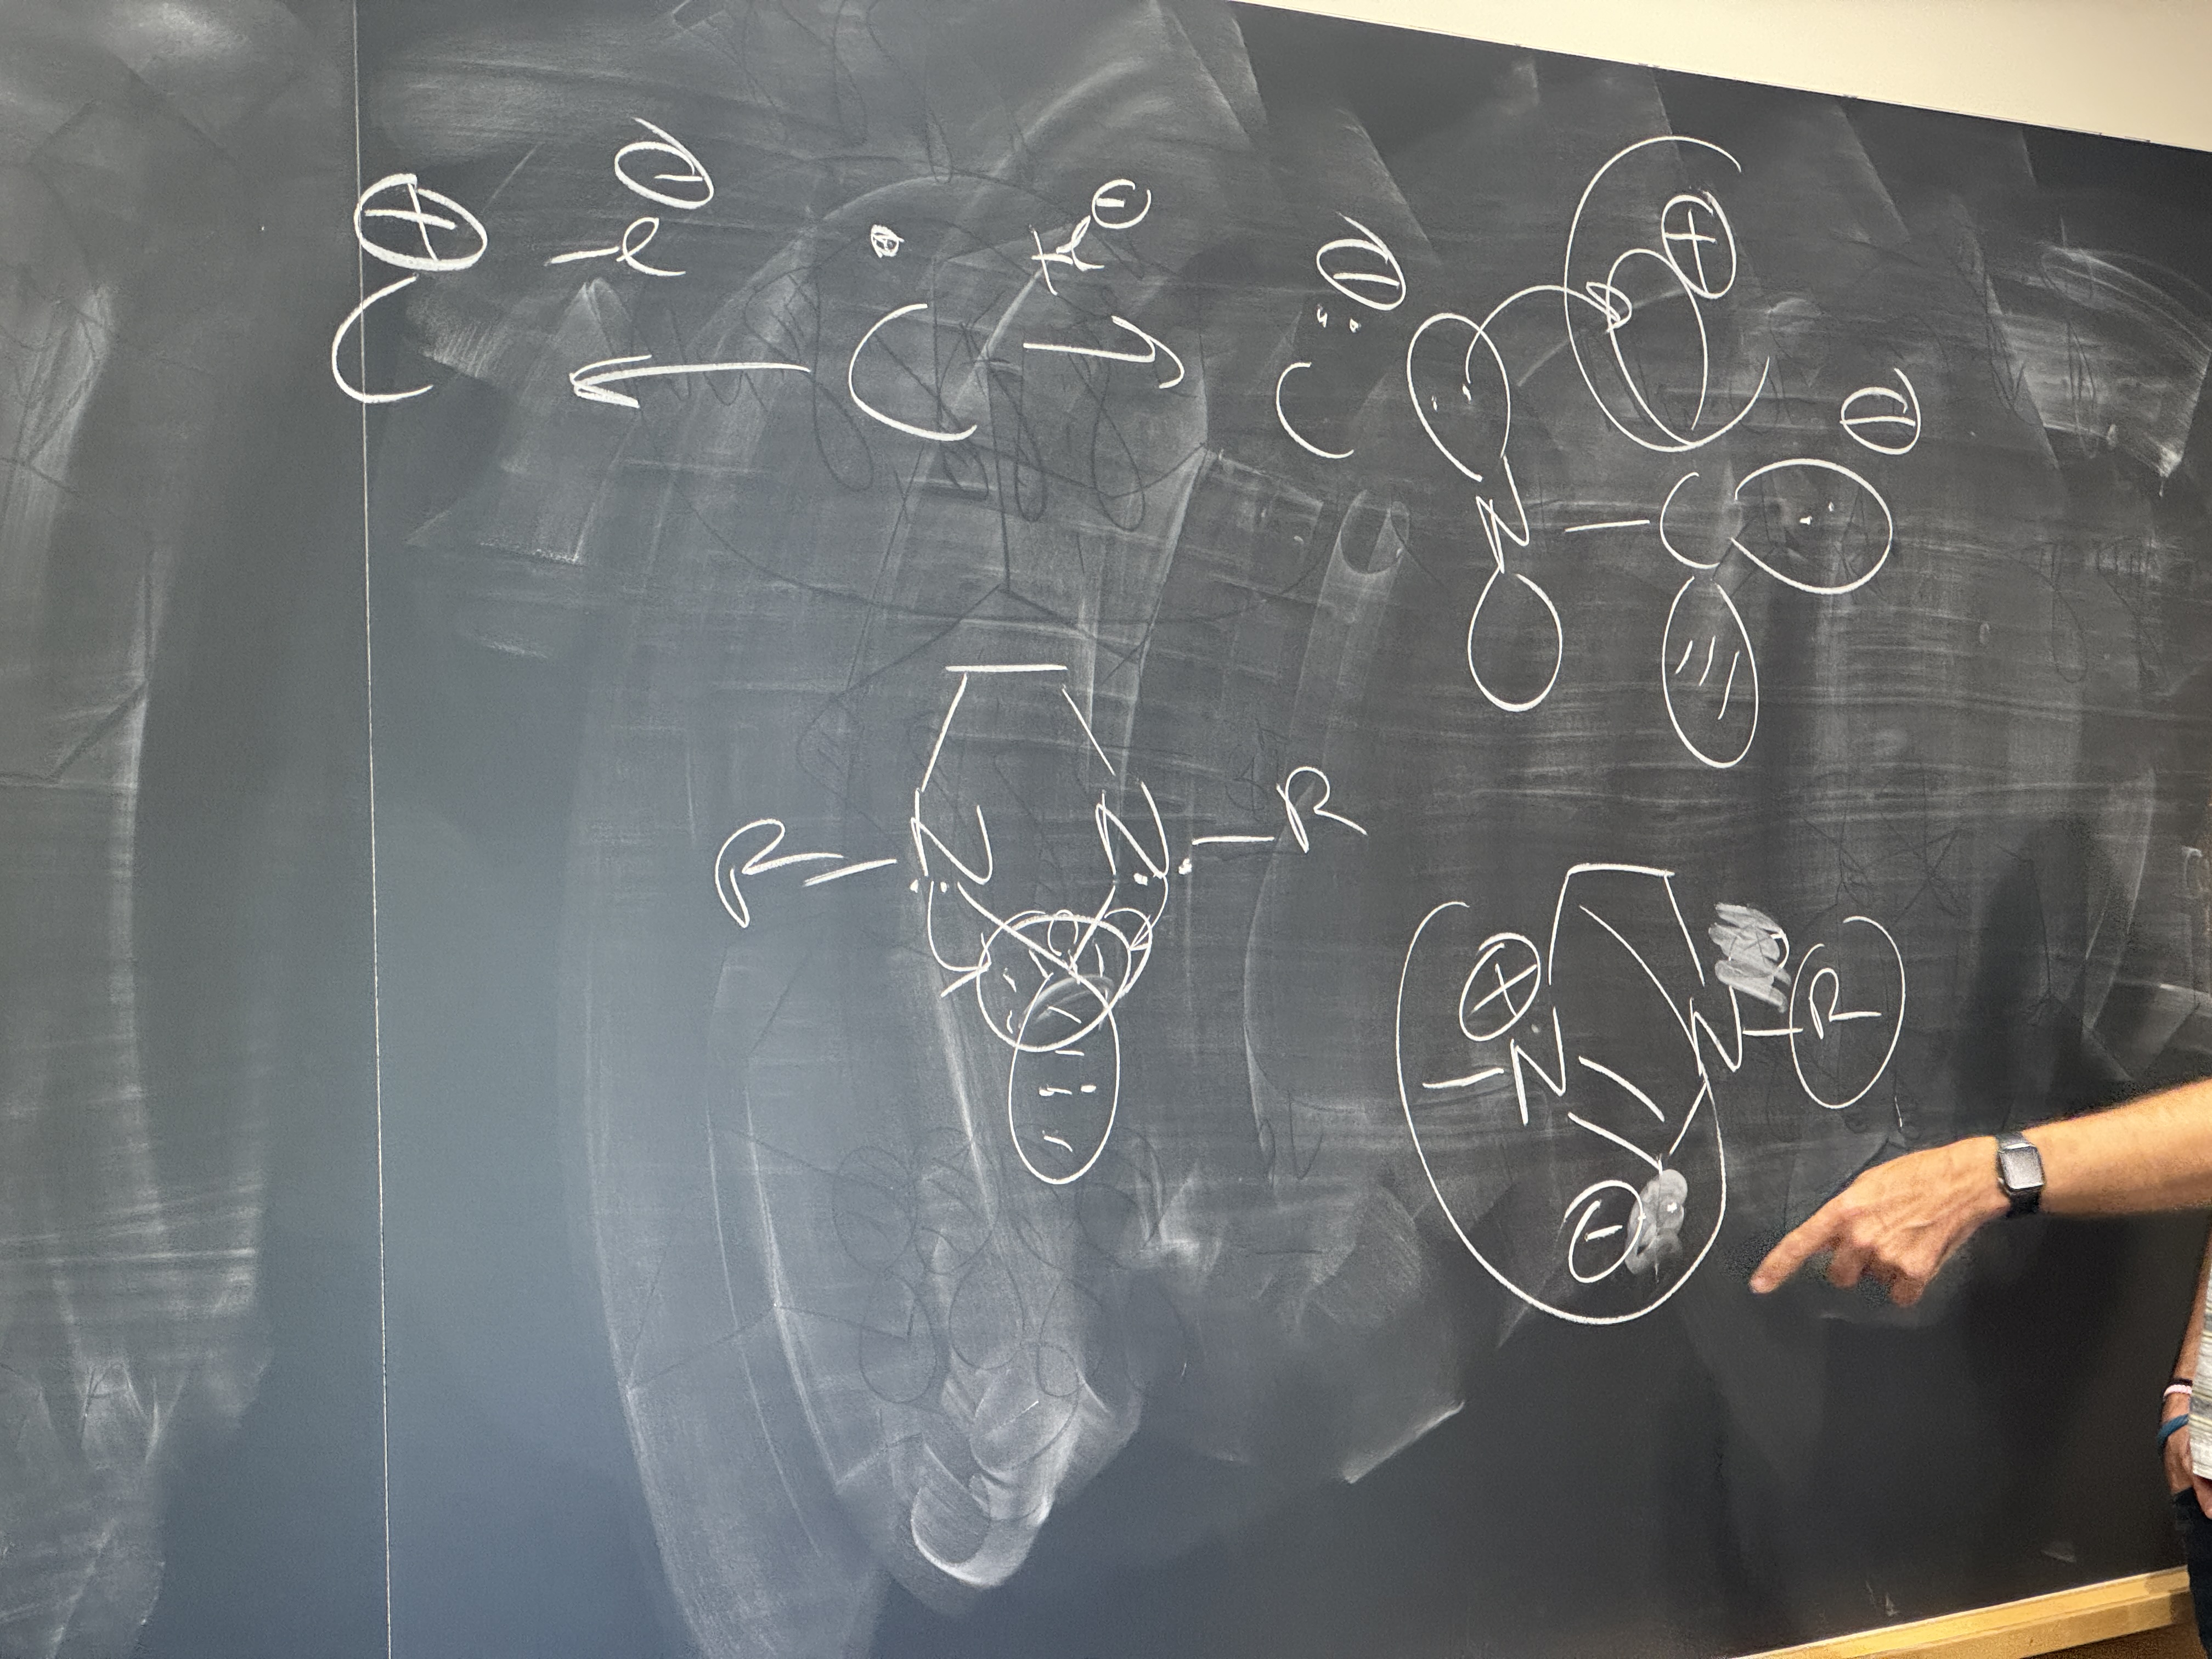 ⊕ -e⊖ +e⊖ ⊖
C ← C → C
⊕
N — C ⊖
R — N N — R
⊕ N N — R
⊖